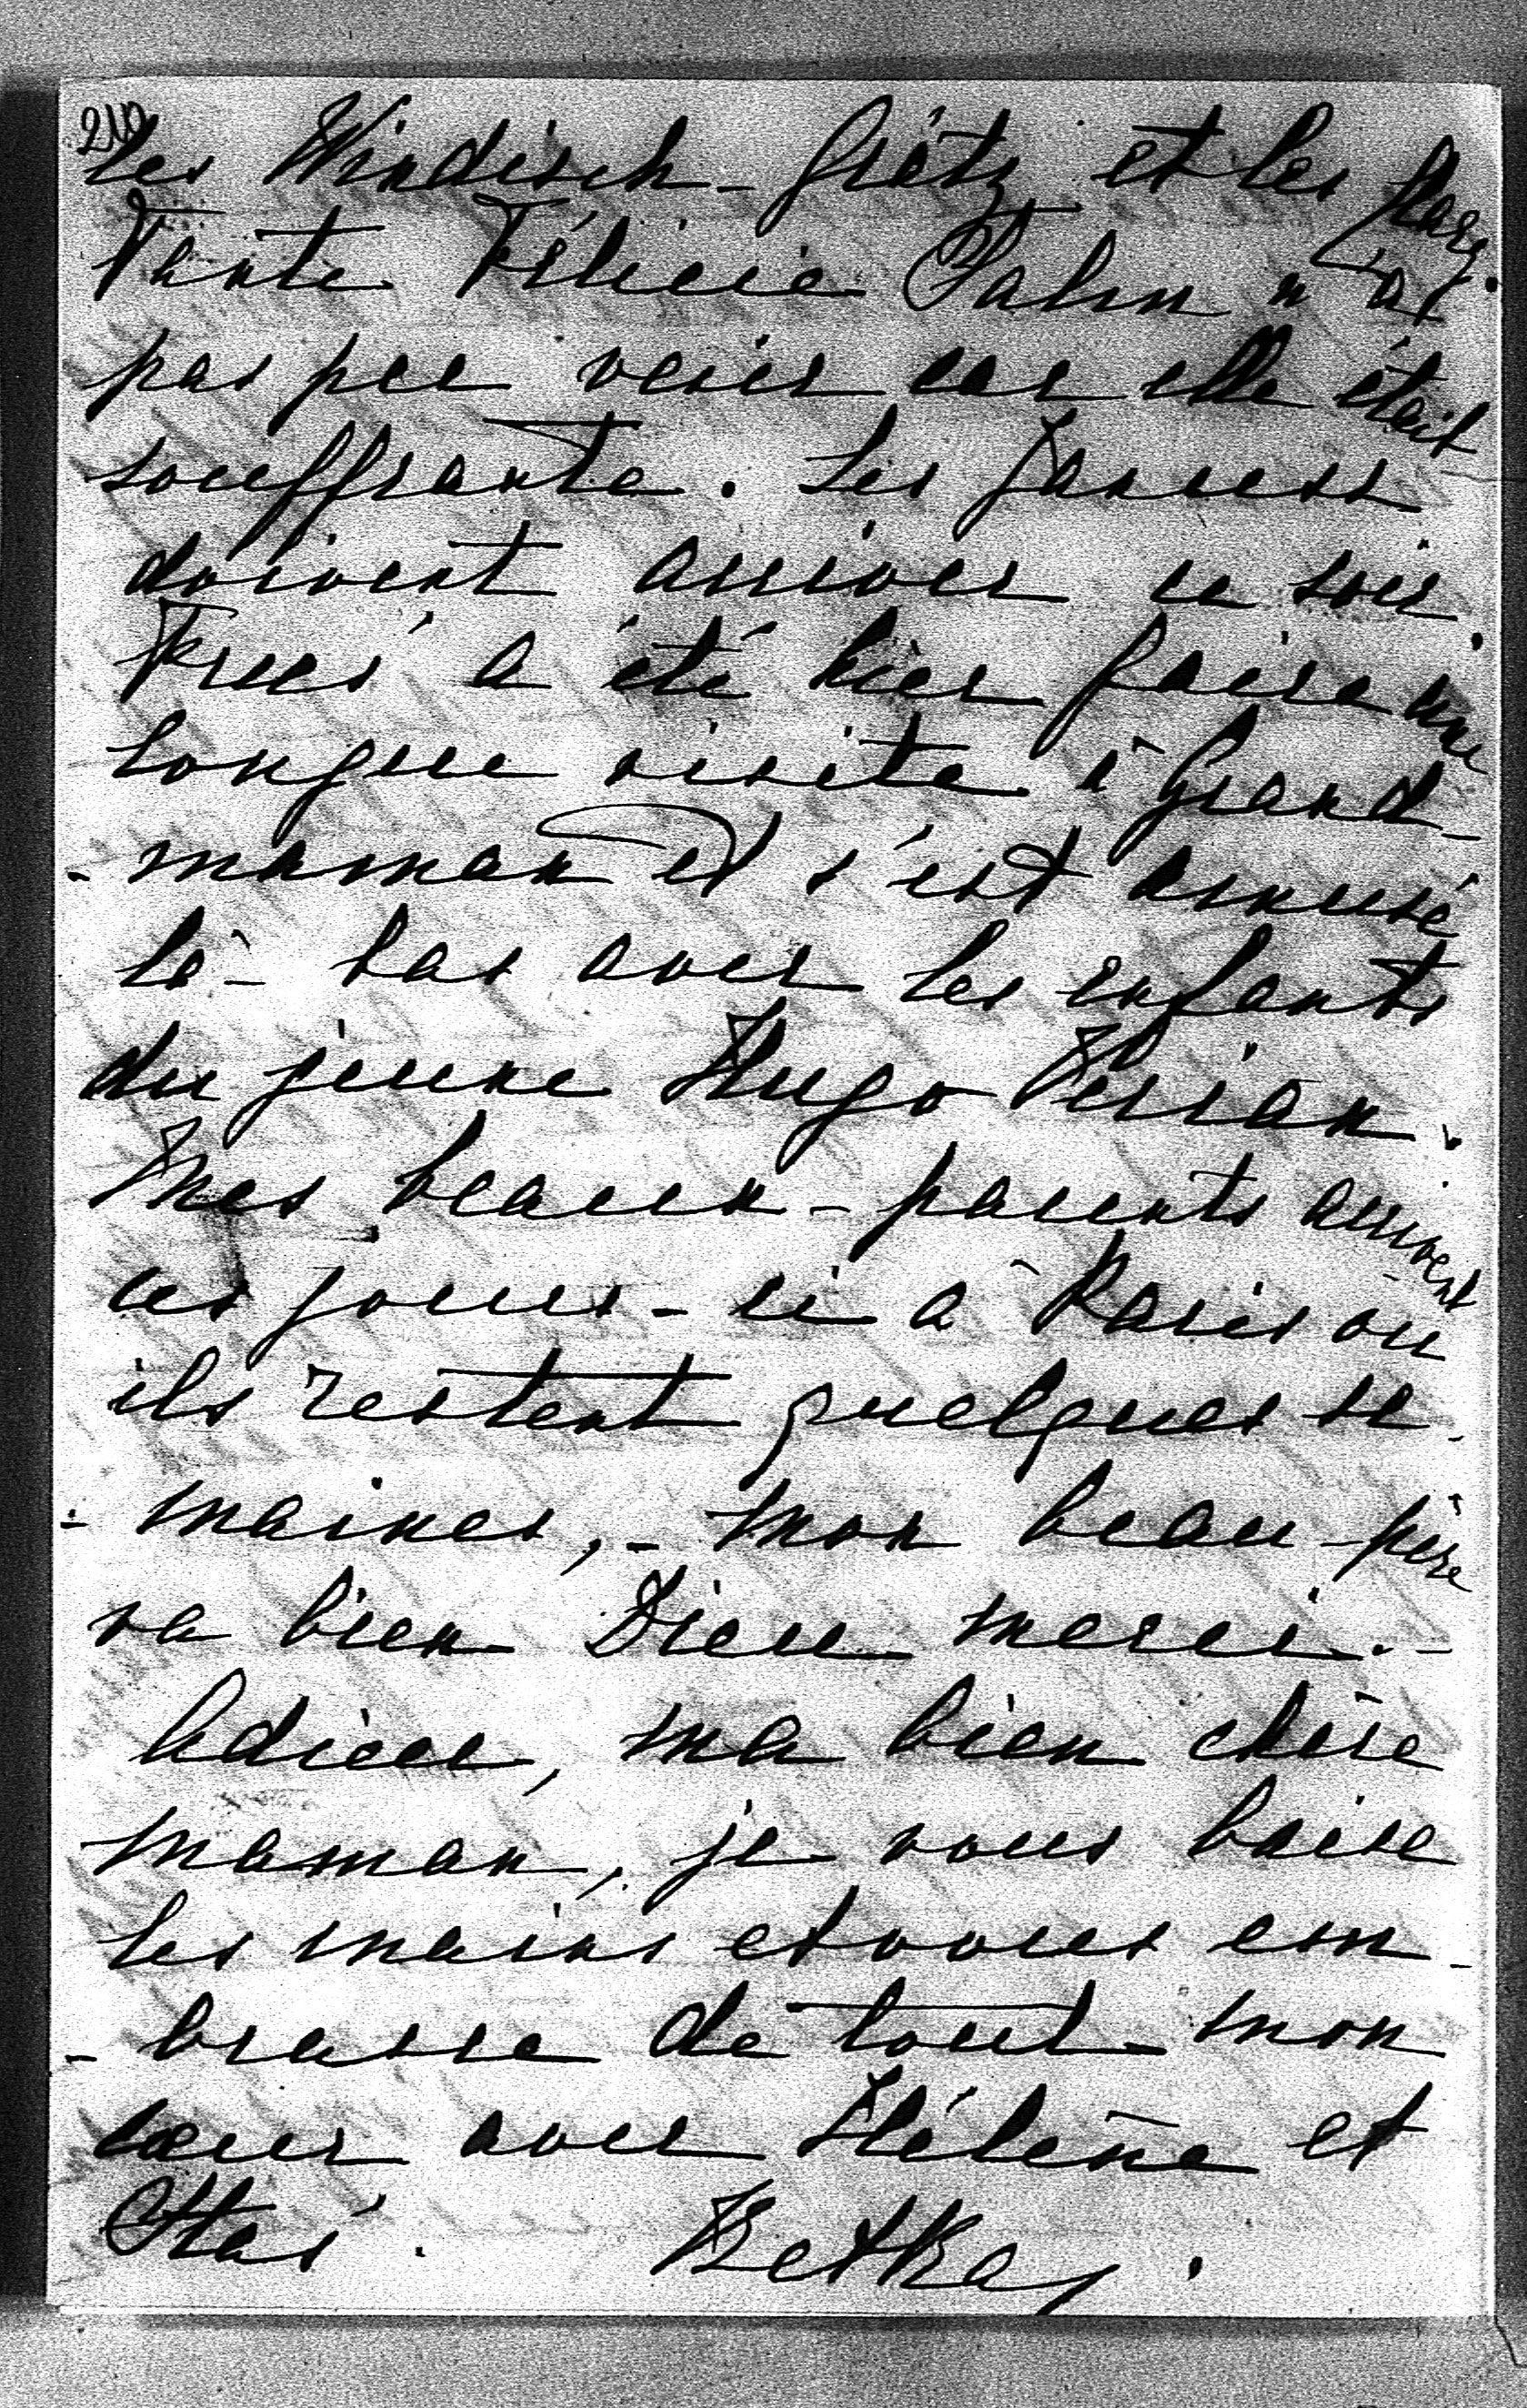 les Windisch-Grätz et les Harz.
Tante Félicie Palm n'a
pas pu venir car elle était
souffrante. Les
doivent arriver ce soir.
a été hier faire une
longue visite à Grand-
-maman et s'est amusé
là-bas avec les enfants
du jeune Hugo
Mes beaux-parents arrivent
ces jours-ci à Paris où
ils restent quelques se-
-maines,- mon beau-père
va bien Dieu merci.-
Adieu, ma bien chère
maman, je vous baise
les mains et vous em-
-brasse de tout mon
cœur avec Hélène et
Stas. Betka.